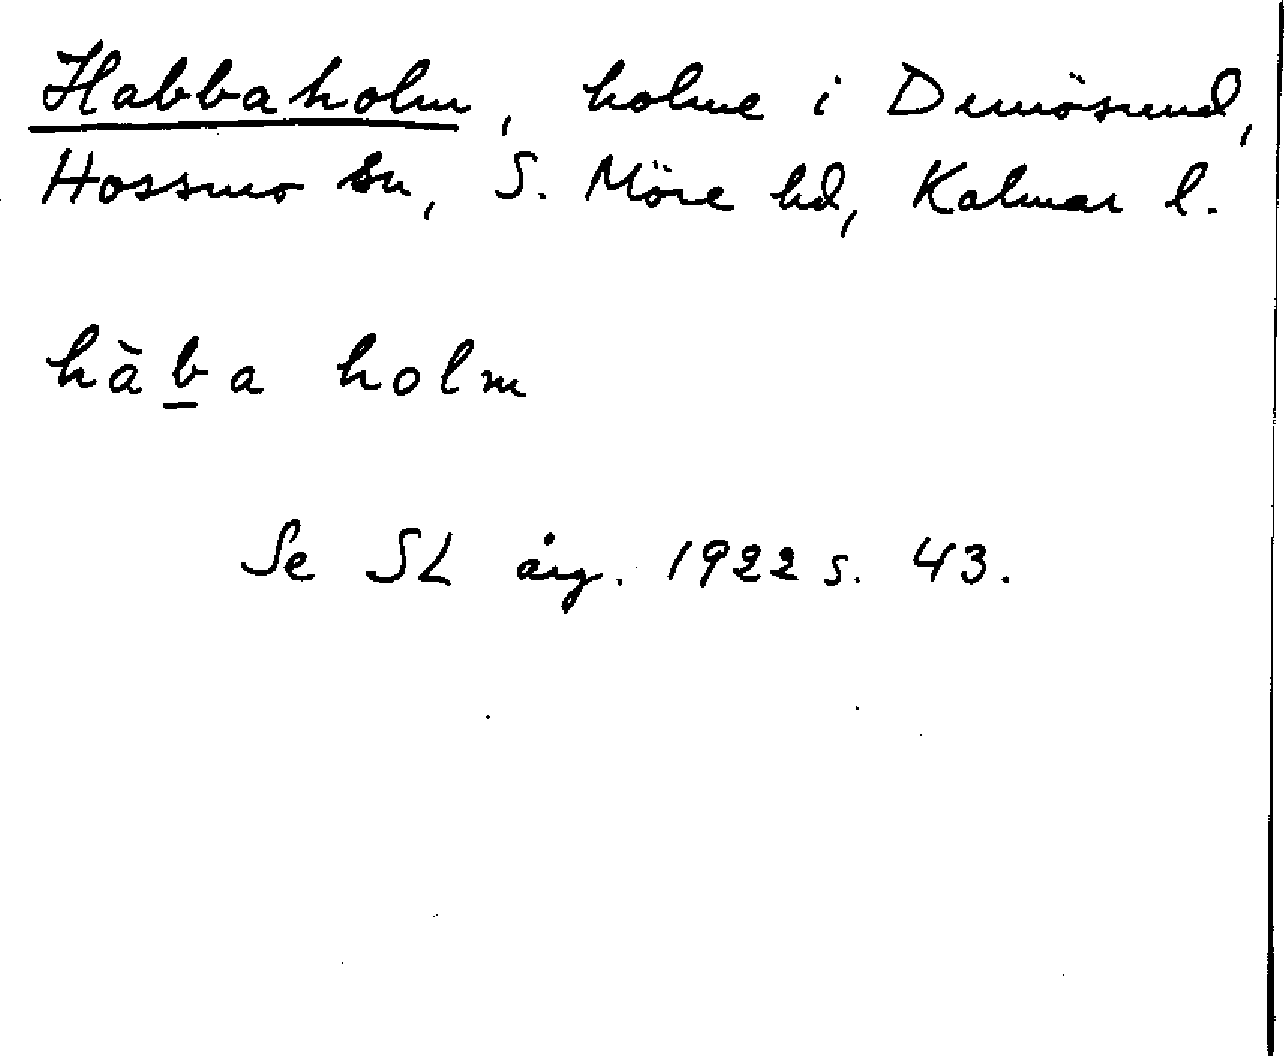 Habbaholm, holme i Dunösund,
Hossmo sn, S. Möre hd, Kalmar l.
hàb̲a holm
Se SL årg. 1922 s. 43.